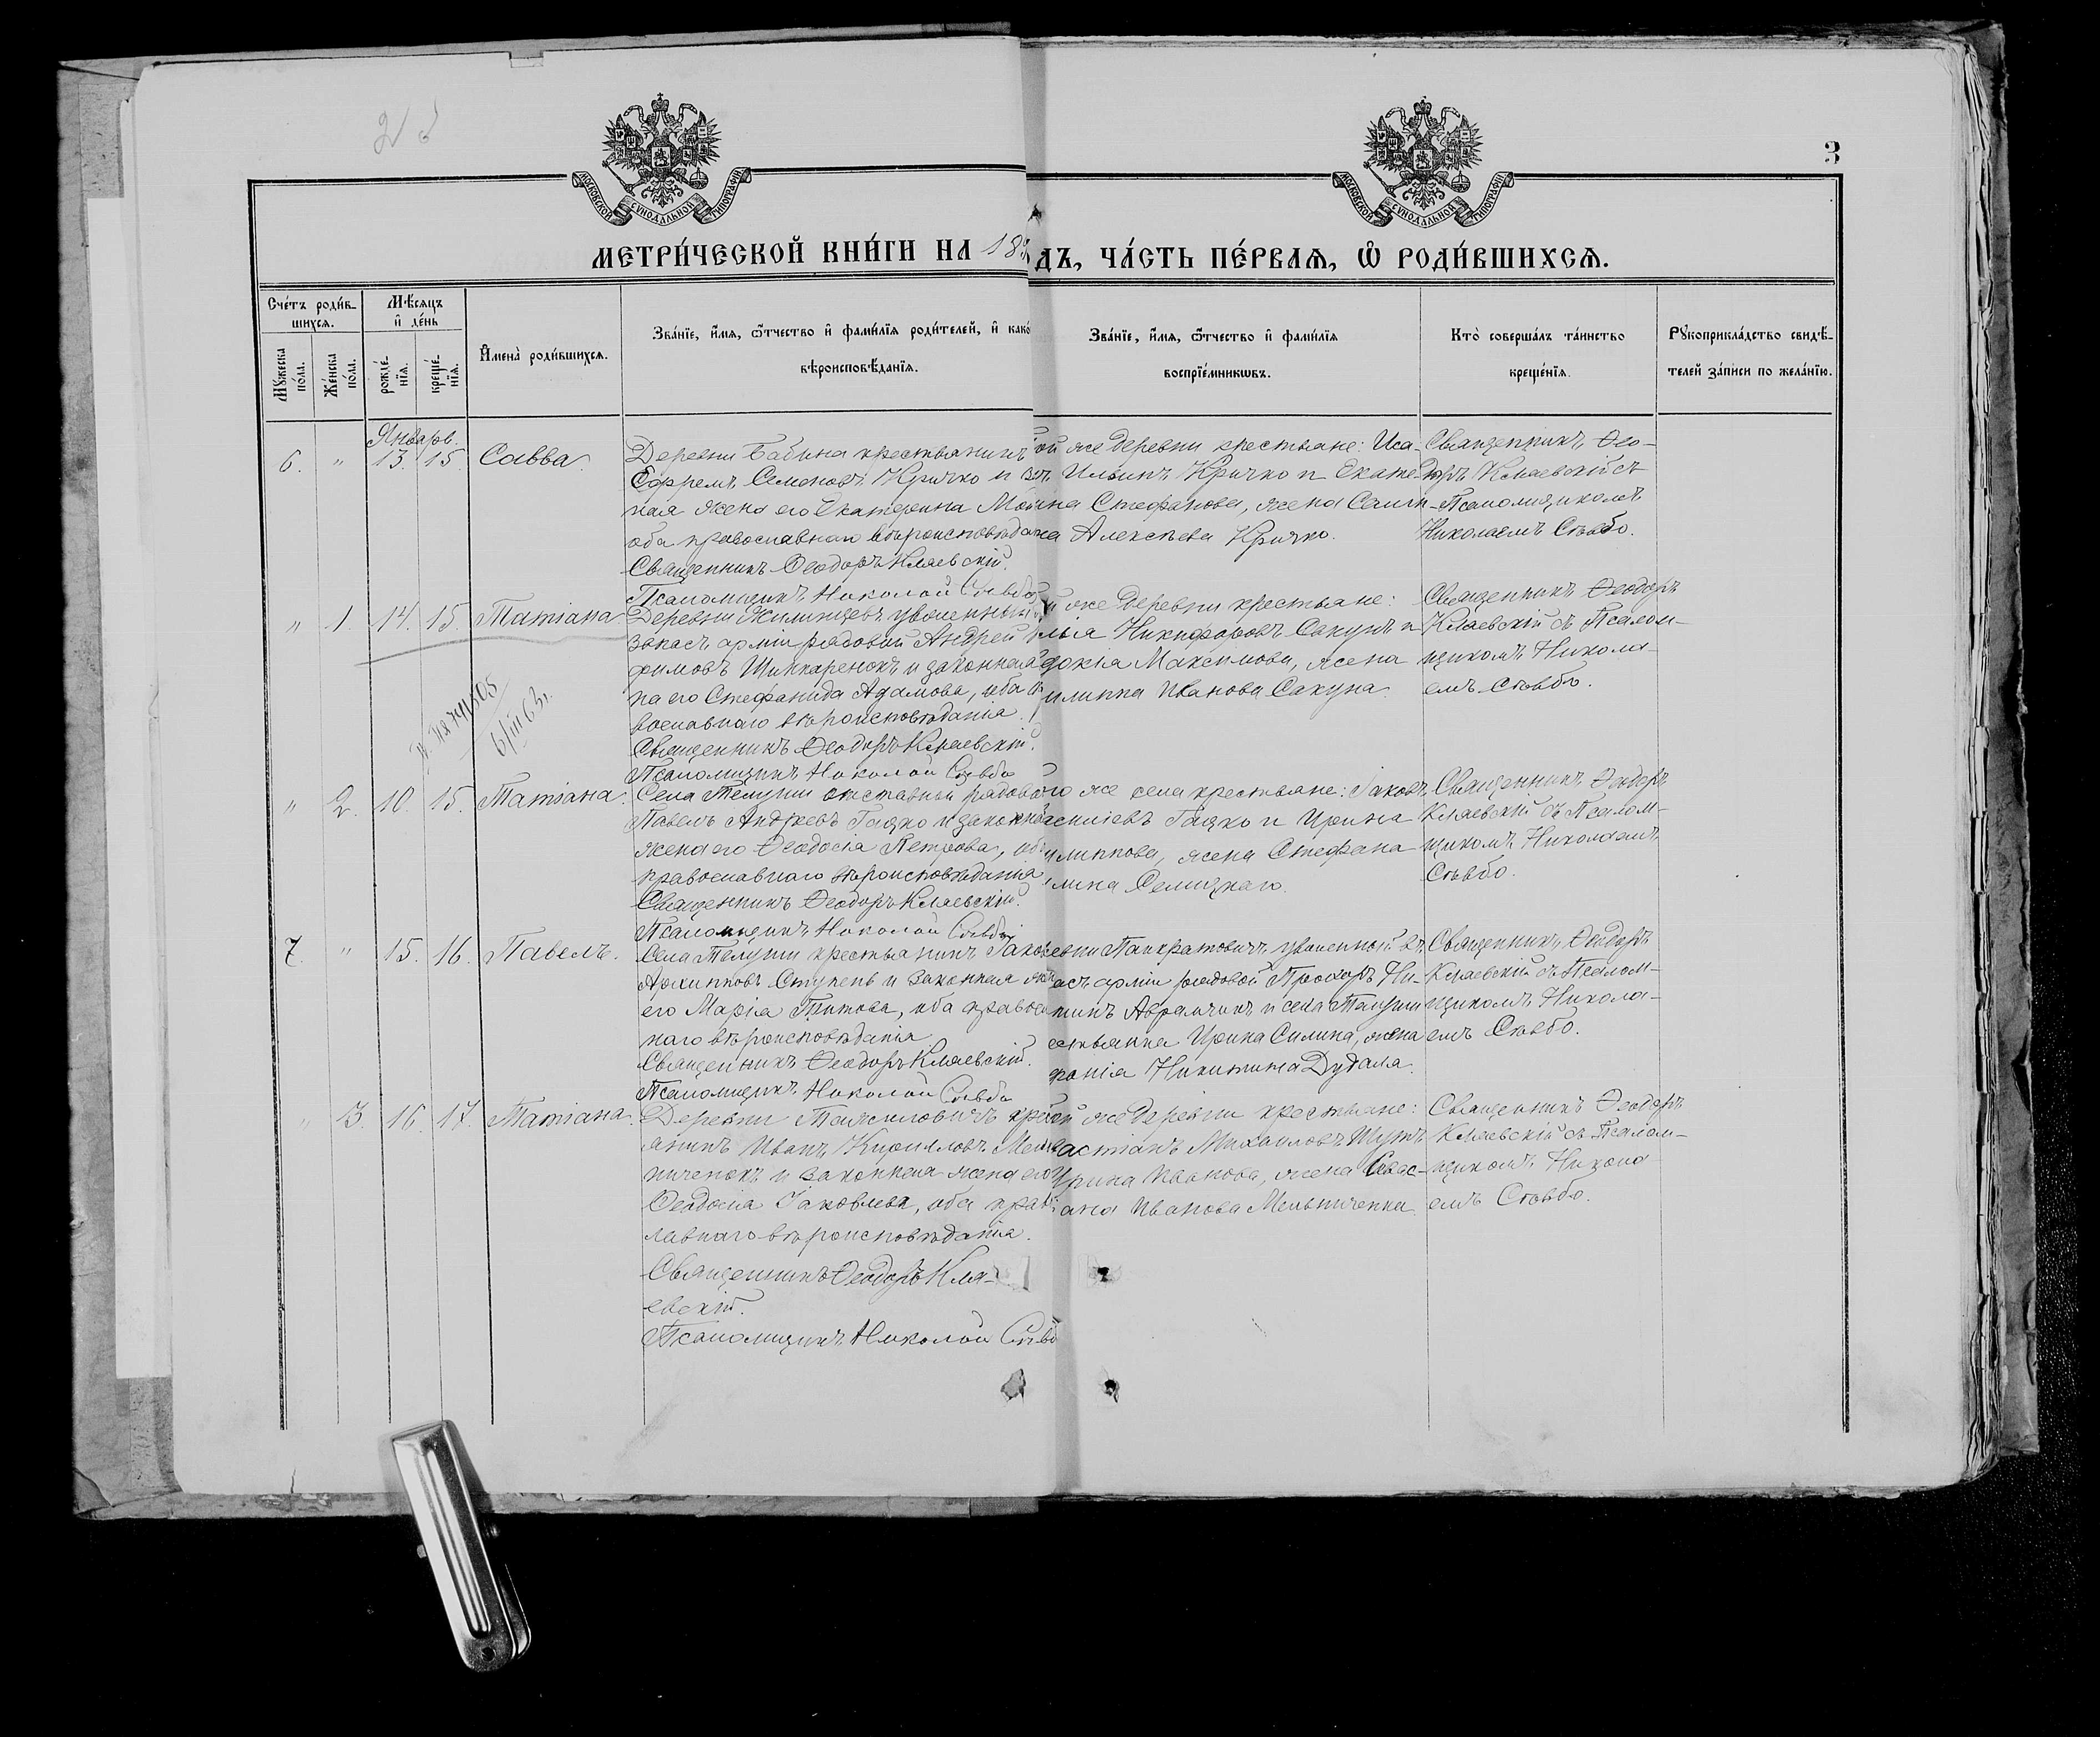 3
МОСКОВСКОЙ СѴНОДАЛЬНОЙ ТИПОГРАФІИ
МОСКОВСКОЙ СѴНОДАЛЬНОЙ ТИПОГРАФІИ
МЕТРИ́ЧЕСКОЙ КНИ́ГИ НА 18
ДЪ, ЧА́СТЬ ПЕ́РВАѦ, Ѡ҆ РОДИ́ВШИХСѦ.
Сче́тъ роди́в-
шихсѧ.
Мѣ́сѧцъ
и҆ де́нь
Мꙋ́жеска
по́ла.
Же́нска
по́ла.
рожде́-
нїѧ.
креще́-
нїѧ.
И҆мена̀ роди́вшихсѧ.
Зва́нїе, и҆́мѧ, ѻ҆́тчество и҆ фами́лїѧ роди́телей, и҆ како́
вѣроисповѣ́данїѧ.
Зва́нїе, и҆́мѧ, ѻ҆́тчество и҆ фами́лїѧ
воспрїе́мникѡвъ.
Кто̀ соверша́лъ та́инство
креще́нїѧ.
Рꙋкоприкла́дство свидѣ́-
телей за́писи по жела́нїю.
Январь.
6. " 13. 15. Савва.
Деревни Бабина крестьянинъ
Ефремъ Семеновъ Кричко и за
ная жена его Екатерина
оба православнаго вѣроисповѣда
Священникъ Ѳеодоръ Кляевскій.
Псаломщикъ Николай Сывбо
ой же деревни крестьяне: Иса-
Ильинъ Кричко и Екате-
на Стефанова, жена
Алексѣева Кричко.
Священникъ Ѳео-
доръ Кляевскій съ
Псаломщикомъ
Николаемъ Сывбо.
" 1. 14. 15. Татіана
Деревни Жилинцевъ уволенный
запасъ арміи рядовой Андрей
фимовъ Шинкаренокъ и законная
на его Стефанида Адамова, оба
вославнаго вѣроисповѣданія.
Священникъ Ѳеодоръ Кляевскій.
Псаломщикъ Николай Сывбо
же деревни крестьяне:
Никифоровъ Сакунъ и
докія Максимова, жена
илиппа Иванова Сакуна
Священникъ Ѳеодоръ
Кляевскій съ Псалом-
щикомъ Никола-
емъ Сывбо.
6/III 63г.
" 2. 10. 15. Татіана.
Села Телуши отставной рядовой
Павелъ Андреевъ Гацко и законная
жена его Ѳеодосія Петрова, оба
православнаго вѣроисповѣданія
Священникъ Ѳеодоръ Кляевскій.
Псаломщикъ Николай Сывбо
го же села крестьяне: Іаковъ
асиліевъ Гацко и Ирина
илиппова, жена Стефана
Селицкаго.
Священникъ Ѳеодоръ
Кляевскій съ Псалом-
щикомъ Николаемъ
Сывбо.
7. " 15. 16. Павелъ.
Села Телуши крестьянинъ Іаковъ
Архиповъ Ступень и законная
его Марія Титова, оба правос
наго вѣроисповѣданія
Священникъ Ѳеодоръ Кляевскій.
Псаломщикъ Николай Сывбо
евни Панкратовичъ уволенный въ
асъ арміи рядовой Прохоръ Ни-
тинъ Абрамчикъ и села Телуши
естьянка Ирина Силина, жена
Никитина Дудала.
Священникъ Ѳеодоръ
Кляевскій съ Псалом-
щикомъ Никола-
емъ Сывбо.
" 3. 16. 17. Татіана.
Деревни Тажиловичъ крест
янинъ Иванъ Кирилловъ Мель
ниченокъ и законная жена его
Ѳеодосія Іаковлева, оба право
лавнаго вѣроисповѣданія.
Священникъ Ѳеодоръ Кля-
евскій.
Псаломщикъ Николай Сывбо
ой же деревни крестьяне:
астіанъ Михаиловъ Шутъ
Ирина Иванова, жена Севас-
ана Иванова Мельниченка
Священникъ Ѳеодоръ
Кляевскій съ Псалом-
щикомъ Никола
емъ Сывбо.